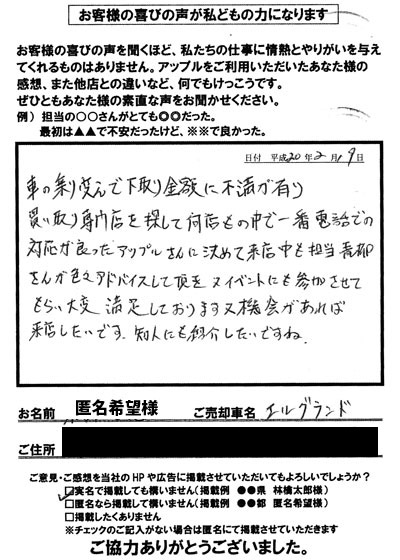 お客様の喜びの声が私どもの力になります
お客様の喜びの声を聞くほど、私たちの仕事に情熱とやりがいを与え
てくれるものはありません。アップルをご利用いただいたあなた様の
感想、また他店との違いなど、何でもけっこうです。
ぜひともあなた様の素直な声をお聞かせください。
例）担当の○○さんがとても◎◎だった。
最初は▲▲で不安だったけど、※※で良かった。
日付 平成20年2月19日
車の乗り変えで下取り金額に不満が有り
買い取り専門店を探して何店もの中で一番電話での
対応が良ったアップルさんに決めて来店中も担当
さんが色々アドバイスして頂き又イベントにも参加させて
もらい大変満足しております又機会があれば
来店したいです。知人にも紹介したいですね。
お名前 匿名希望様 ご売却車名 エルグランド
ご住所
ご意見・ご感想を当社のHPや広告に掲載させていただいてもよろしいでしょうか？
□実名で掲載しても構いません（掲載例 ●●県 林檎太郎様）
□匿名なら掲載して構いません（掲載例 ●●都 匿名希望様）
□掲載したくありません
※チェックのご記入がない場合は匿名にて掲載させていただきます
ご協力ありがとうございました。